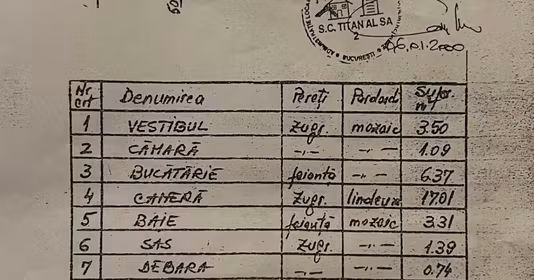 S.C. TITAN AL SA
2
BUCUREȘTI
06.01.2000
Nr. crt Denumirea Pereți Pardos. Supr. m²
1 VESTIBUL Zugr. mozaic 3.50
2 CĂMARĂ -"- -"- 1.09
3 BUCĂTĂRIE faianță -"- 6.37
4 CAMERĂ Zugr. linoleum 17.01
5 BAIE faianță mozaic 3.31
6 SAS Zugr. -"- 1.39
7 DEBARA -"- -"- 0.74